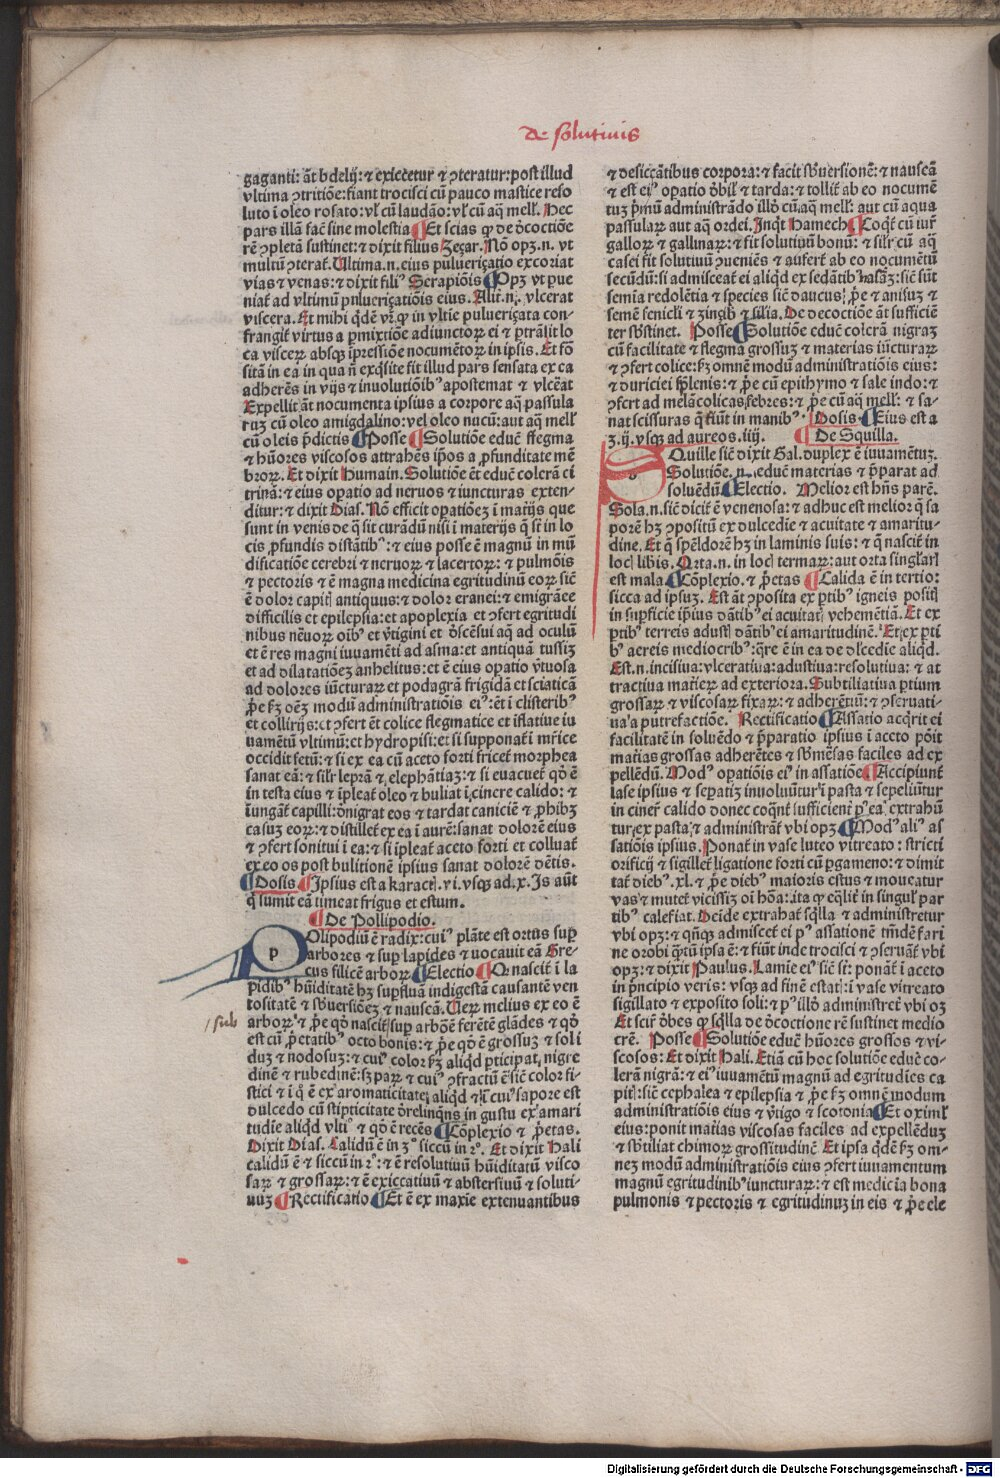 de solutiuis
gaganti: āt bdelij: ⁊ exiccetur ⁊ ↄteratur: post illud
vltima ↄtritiōe: fiant trocisci cū pauco mastice reso
luto ī oleo rosato: vl' cū laudāo: vl' cū aq̄ mell'. Hec
pars illā facē sine molestia ¶ Et scias ꝙ de d̄coctiōe
rē ↄpletā sustinet: ⁊ dixit filius Zezar. Nō opꝫ .n. vt
multū ↄterat̄. Ultima .n. eius pulueriçatio excoriat
vias ⁊ venas: ⁊ dixit fili⁹ Serapiōis ¶ Opꝫ vt ꝑue
niat̄ ad vltimū pulueriçatiōis eius. Alit̄ .n. vlcerat
viscera. Et mihi q̄dē vr̄ ꝙ in vltīe pulueriçata con-
frangit̄ virtus a ꝑmixtiōe adiunctoꝝ ei ⁊ ptrālit lo
ca visceꝝ absqꝫ īpressiōe nocumētoꝝ in ipsis. Et fō
sitā in ea in qua nō exq̄site fit illud pars sensata ex ca
adherēs in vijs ⁊ inuolutiōib⁹ apostemat ⁊ vlcēat
Expellit āt nocumenta ipsius a corpore aq̄ passula
rum cū oleo amigdalino: vel oleo nucū: aut aq̄ mell'
cū oleis p̄dictis ¶ Posse ¶ Solutiōe educ̄ flegma
⁊ hūores viscosos attrahēs ip̄os a ꝓfunditate mē
broꝝ. Et dixit Humain. Solutiōe ēt educ̄ colerā ci
trinā: ⁊ eius opatio ad neruos ⁊ iuncturas exten-
ditur: ⁊ dixit Dias. Nō efficit opatiōeꝫ ī mat̄ijs que
sunt in venis de q̄ sit curādū nisi ī materijs q̄ st̄ in lo
cis ꝓfundis distātib⁹: ⁊ eius posse ē magnū in mū
dificatiōe cerebri ⁊ neruoꝝ ⁊ lacertoꝝ: ⁊ pulmōis
⁊ pectoris ⁊ ē magna medicina egritudinū eoꝝ sic̄
ē dolor capit̄ antiquus: ⁊ dolor eranei: ⁊ emigrāee
difficilis et epilepsia: et apoplexia et ↄfert egritudi
nibus nēuoꝝ oīb⁹ et v̄tigini et d̄scēsui aq̄ ad oculū
et ē res magni iuuamēti ad asma: et antiquā tussiꝫ
et ad dilatatiōeꝫ anhelitus: et ē eius oꝑatio v̄tuosa
ad dolores iūcturaꝝ et podagrā frigidā et sciaticā
p̄e ẜꝫ oēꝫ modū administratiōis ei⁹: ēt ī clisterib⁹
et collirijs: et ↄfert ēt colice flegmatice et īflatiue iu
uamētū vltimū: et hydropisi: et si supponat̄ ī mr̄ice
occidit fetū: ⁊ si ex ea cū aceto forti fricet̄ morphea
sanat eā: ⁊ silr leprā ⁊ elephātiaꝫ: ⁊ si euacuet̄ qd̄ ē
in testa eius ⁊ īpleat̄ oleo ⁊ buliat ī cinere calido: ⁊
īungāt̄ capilli: d̄nigrat eos ⁊ tardat caniciē ⁊ ꝓhibꝫ
casuꝫ eoꝝ: ⁊ distillet̄ ex ea ī aurē: sanat dolorē eius
⁊ ↄfert sonitui ī ea: ⁊ si īpleat̄ aceto forti et colluat̄
ex eo os post bulitionē ipsius sanat dolorē dētis.
¶ Dosis ¶ Ipsius est a karact̄. vi. vsqꝫ ad .x. Is aūt
q̄ sumit eā timeat frigus et estum.
¶ De Pollipodio.
p
Olipodiū ē radix: cui⁹ plāte est ortus suꝑ
arbores ⁊ suꝑ lapides ⁊ uocauit eā Gre-
cus filicē arboꝝ ¶ Electio ¶ Q nascit̄ ī la
pidib⁹ hūiditatē hꝫ suꝑfluā indigestā causantē ven
tositatē ⁊ sb̄uersiōeꝫ ⁊ nauseā. Ueꝝ melius ex eo ē
/ sub
arboꝝ ⁊ p̄e qd̄ nascit̄ suꝑ arbōē ferētē glādes ⁊ qd̄
est cū p̄etatib⁹ octo bonis: ⁊ p̄e qd̄ ē grossuꝫ ⁊ soli
duꝫ ⁊ nodosuꝫ: ⁊ cui⁹ color hꝫ aliqd̄ ꝑticipat̄ nigre
dinē ⁊ rubedinē: sꝫ paꝝ ⁊ cui⁹ ↄfractū ē sic̄ color fi-
stici ⁊ ī q̄ ē ex aromaticitate aliqd̄ ⁊ ī cui⁹ sapore est
dulcedo cū stipticitate d̄relinq̄ns in gustu ex amari
tudīe aliqd̄ vlti⁹ ⁊ qd̄ ē recēs ¶ Cōplexio ⁊ p̄etas.
Dixit Dias. Calidū ē in 3° siccū in 2°. Et dixit Hali
calidū ē ⁊ siccū in 2°: ⁊ ē resolutiuū hūiditatū visco
saꝝ ⁊ grossaꝝ: ⁊ ē exiccatiuū ⁊ abstersiuū ⁊ soluti-
uuꝫ ¶ Rectificatio ¶ Et ē ex maxīe extenuantibus
⁊ desiccātibus corpora: ⁊ facit sb̄uersionē: ⁊ nauseā
⁊ est ei⁹ opatio d̄bil' ⁊ tarda: ⁊ tollit̄ ab eo nocumē
tuꝫ p̄mū administrādo illd̄ cū aq̄ mell'. aut cū aqua
passulaꝝ aut aq̄ ordei. Inqt̄ Hamech ¶ Coqt̄ cū iur̄
galloꝝ ⁊ gallinaꝝ: ⁊ fit solutiuū bonū: ⁊ silr cū aq̄
casei fit solutiuū ↄueniēs ⁊ aufert̄ ab eo nocumētū
secūdū: si admisceat̄ ei aliqd̄ ex sedātib⁹ nāsāꝫ: sic̄ sūt
semīa redolētia ⁊ species sic̄ daucus: p̄e ⁊ anisuꝫ ⁊
semē feniculi ⁊ zinzib̄ ⁊ silīa. De decoctiōe āt sufficiē
ter sb̄stinet. Posse ¶ Solutiōe educ̄ colerā nigraꝫ
cū facilitate ⁊ flegma grossuꝫ ⁊ materias iūcturaꝝ
⁊ ↄfert colice: ẜꝫ omnē modū administratiōis eius:
⁊ duriciei sp̄lenis: ⁊ p̄e cū epithymo ⁊ sale indo: ⁊
ↄfert ad melācolicas febres: ⁊ p̄e cū aq̄ mell': ⁊ sa-
nat scissuras q̄ fiūt in manib⁹. Dosis ¶ Eius est a
ʒ.ij. vsqꝫ ad aureos .iiij. ¶ De Squilla.
s
Quille sic̄ dixit Gal. duplex ē iuuamētuꝫ.
Solutiōe .n. educ̄ materias ⁊ p̄parat ad
soluēdū ¶ Electio. Melior est hn̄s parē.
Sola .n. sic̄ dicit̄ ē venenosa: ⁊ adhuc est melior q̄ sa
porē hꝫ ↄpositū ex dulcedie ⁊ acuitate ⁊ amaritu-
dine. Et q̄ spēdorē hꝫ in laminis suis: ⁊ q̄ nascit̄ in
loc̄ libis. Orta .n. in loc̄ termaꝝ: aut orta singl'ar̄
est mala ¶ Cōplexio. ⁊ p̄etas ¶ Calida ē in tertio:
sicca ad ipsuꝫ. Est āt ↄposita ex ꝑtib⁹ igneis posit̄
in suꝑficie ip̄ius dātib⁹ ei acuitat̄ vehemētiā. Et ex
ꝑtib⁹ terreis adust̄ dātib⁹ ei amaritudinē. Et ex ꝑti
b⁹ aereis mediocrib⁹: qr̄e ē in ea de dl'cedie aliqd̄.
Est .n. incisiua: vlceratiua: adustiua: resolutiua: ⁊ at
tractiua mat̄ieꝝ ad exteriora. Subtiliatiua ꝑtium
grossaꝝ ⁊ viscosaꝝ fixaꝝ: ⁊ adherētiū: ⁊ ↄseruati-
ua a putrefactiōe. Rectificatio ¶ Assatio acq̄rit ei
facilitatē in soluēdo ⁊ p̄paratio ipsius ī aceto pōit
mat̄ias grossas adherētes ⁊ sb̄mēsas faciles ad ex
pellēdū. Mod⁹ oꝑatiōis ei⁹ in assatiōe ¶ Accipiunt̄
lase ipsius ⁊ seꝑatiꝫ inuoluūtur ī pasta ⁊ sepeliūtur
in cinere calido donec coq̄nt̄ sufficient̄ p⁹ ea extrahū
tur ex pasta ⁊ administrāt̄ vbi opꝫ ¶ Mod⁹ ali⁹ as
satiōis ipsius. Ponat̄ in vase luteo vitreato: stricti
orificij ⁊ sigillet̄ ligatione forti cū pgameno: ⁊ dimit
tat̄ dieb⁹ .xl. ⁊ p̄e dieb⁹ maioris estus ⁊ moueatur
vas ⁊ mutet̄ vicissiꝫ oī hōa: ita ꝙ eq̄lit̄ in singul' par
tib⁹ calefiat. Deīde extrahat̄ sq̄lla ⁊ administretur
vbi opꝫ: ⁊ qn̄qꝫ admiscet̄ ei p⁹ assationē tm̄dē fari
ne orobi q̄tū ipsa ē: ⁊ fiūt inde trocisci ⁊ ↄseruāt̄ vbi
opꝫ: ⁊ dixit Paulus. Lamīe ei⁹ sic̄ st̄: ponāt̄ ī aceto
in p̄ncipio veris: vsqꝫ ad finē estat̄: ī vase vitreato
sigillato ⁊ exposito soli: ⁊ p⁹ illd̄ administret̄ vbi oꝫ
Et scit̄ d̄bes ꝙ sq̄lla de d̄coctione rē sustinet medio
crē. Posse ¶ Solutiōe educ̄ hūores grossos ⁊ vi-
scosos: Et dixit Hali. Etiā cū hoc solutiōe educ̄ co-
lerā nigrā: ⁊ ei⁹ iuuamētū magnū ad egritudies ca
pit̄: sic̄ cephalea ⁊ epilepsia ⁊ p̄e ẜꝫ omnē modum
administratiōis eius ⁊ v̄tigo ⁊ scotomia ¶ Et oximl'
eius: ponit mat̄ias viscosas faciles ad expellēduꝫ
⁊ sb̄tiliat chimoꝝ grossitudinē. Et ipsa q̄dē ẜꝫ om-
neꝫ modū administratiōis eius ↄfert iuuamentum
magnū egritudinib⁹ iuncturaꝝ: ⁊ est medicīa bona
pulmonis ⁊ pectoris ⁊ egritudinuꝫ in eis ⁊ p̄e ele
Digitalisierung gefördert durch die Deutsche Forschungsgemeinschaft - DFG